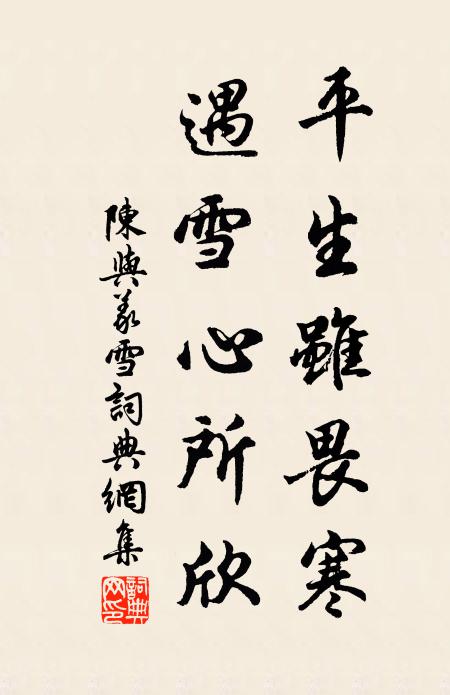 平生雖畏寒
遇雪心所欣
陳與義雪詞典網集
詞典网印